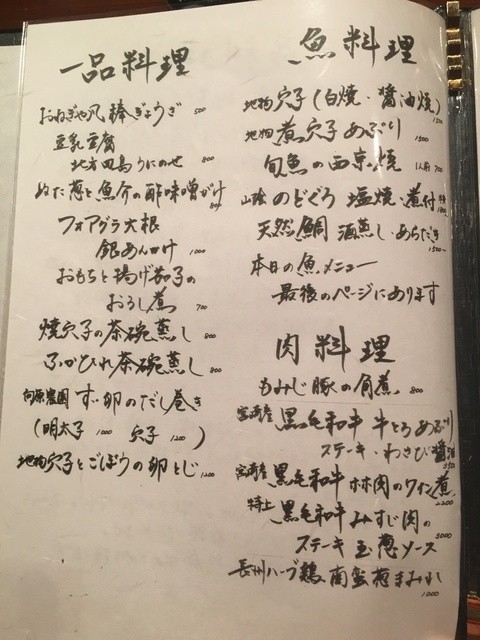 一品料理
おねぎや風棒ぎょうざ 500
豆乳豆腐
北方四島うにのせ 800
ぬた葱と魚介の酢味噌がけ
フォアグラ大根
銀あんかけ 1000
おもちと揚げ茄子の
おろし煮 700
焼穴子の茶碗蒸し 800
ふかひれ茶碗蒸し 800
向原農園 すごい卵のだし巻き
(明太子 1000 穴子 1200)
地物穴子とごぼうの卵とじ 1200
魚料理
地物穴子(白焼・醤油焼)
地物煮穴子あぶり 1500
旬魚の西京焼 1人前 700
山陰のどぐろ 塩焼・煮付
天然鯛 酒蒸し・あらだき 1500~
本日の魚メニュー
最後のページにあります
肉料理
もみじ豚の角煮 800
宮崎産 黒毛和牛 牛とろあぶり
ステーキ・わさび醤油
宮崎産 黒毛和牛ホホ肉のワイン煮 2200
特上 黒毛和牛みすじ肉の
ステーキ 玉葱ソース 3000
長州ハーブ鶏 南蛮葱まみれ 1000